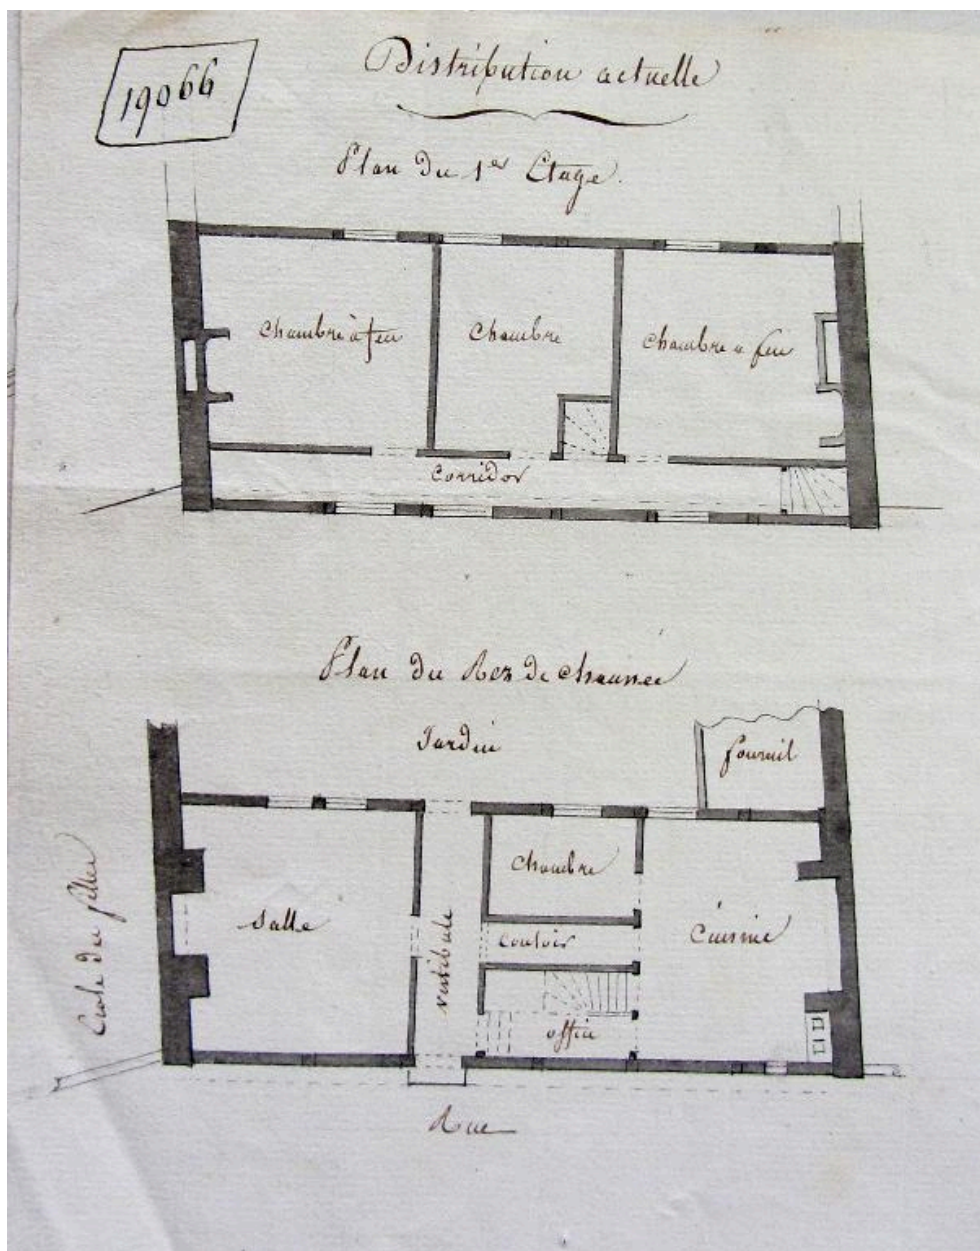 19066
Distribution actuelle
Plan du 1er Etage.
Chambre à feu
Chambre
Chambre a feu
Corridor
Plan du Rez de chaussée
Jardin
fournil
Ecole des filles
Salle
vestibule
Chambre
Couloir
office
Cuisine
Rue